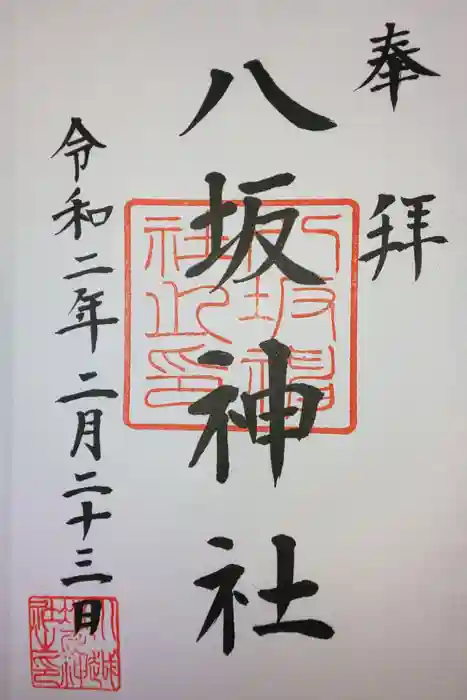 奉拝
八坂神社
八坂神社之印
令和二年二月二十三日